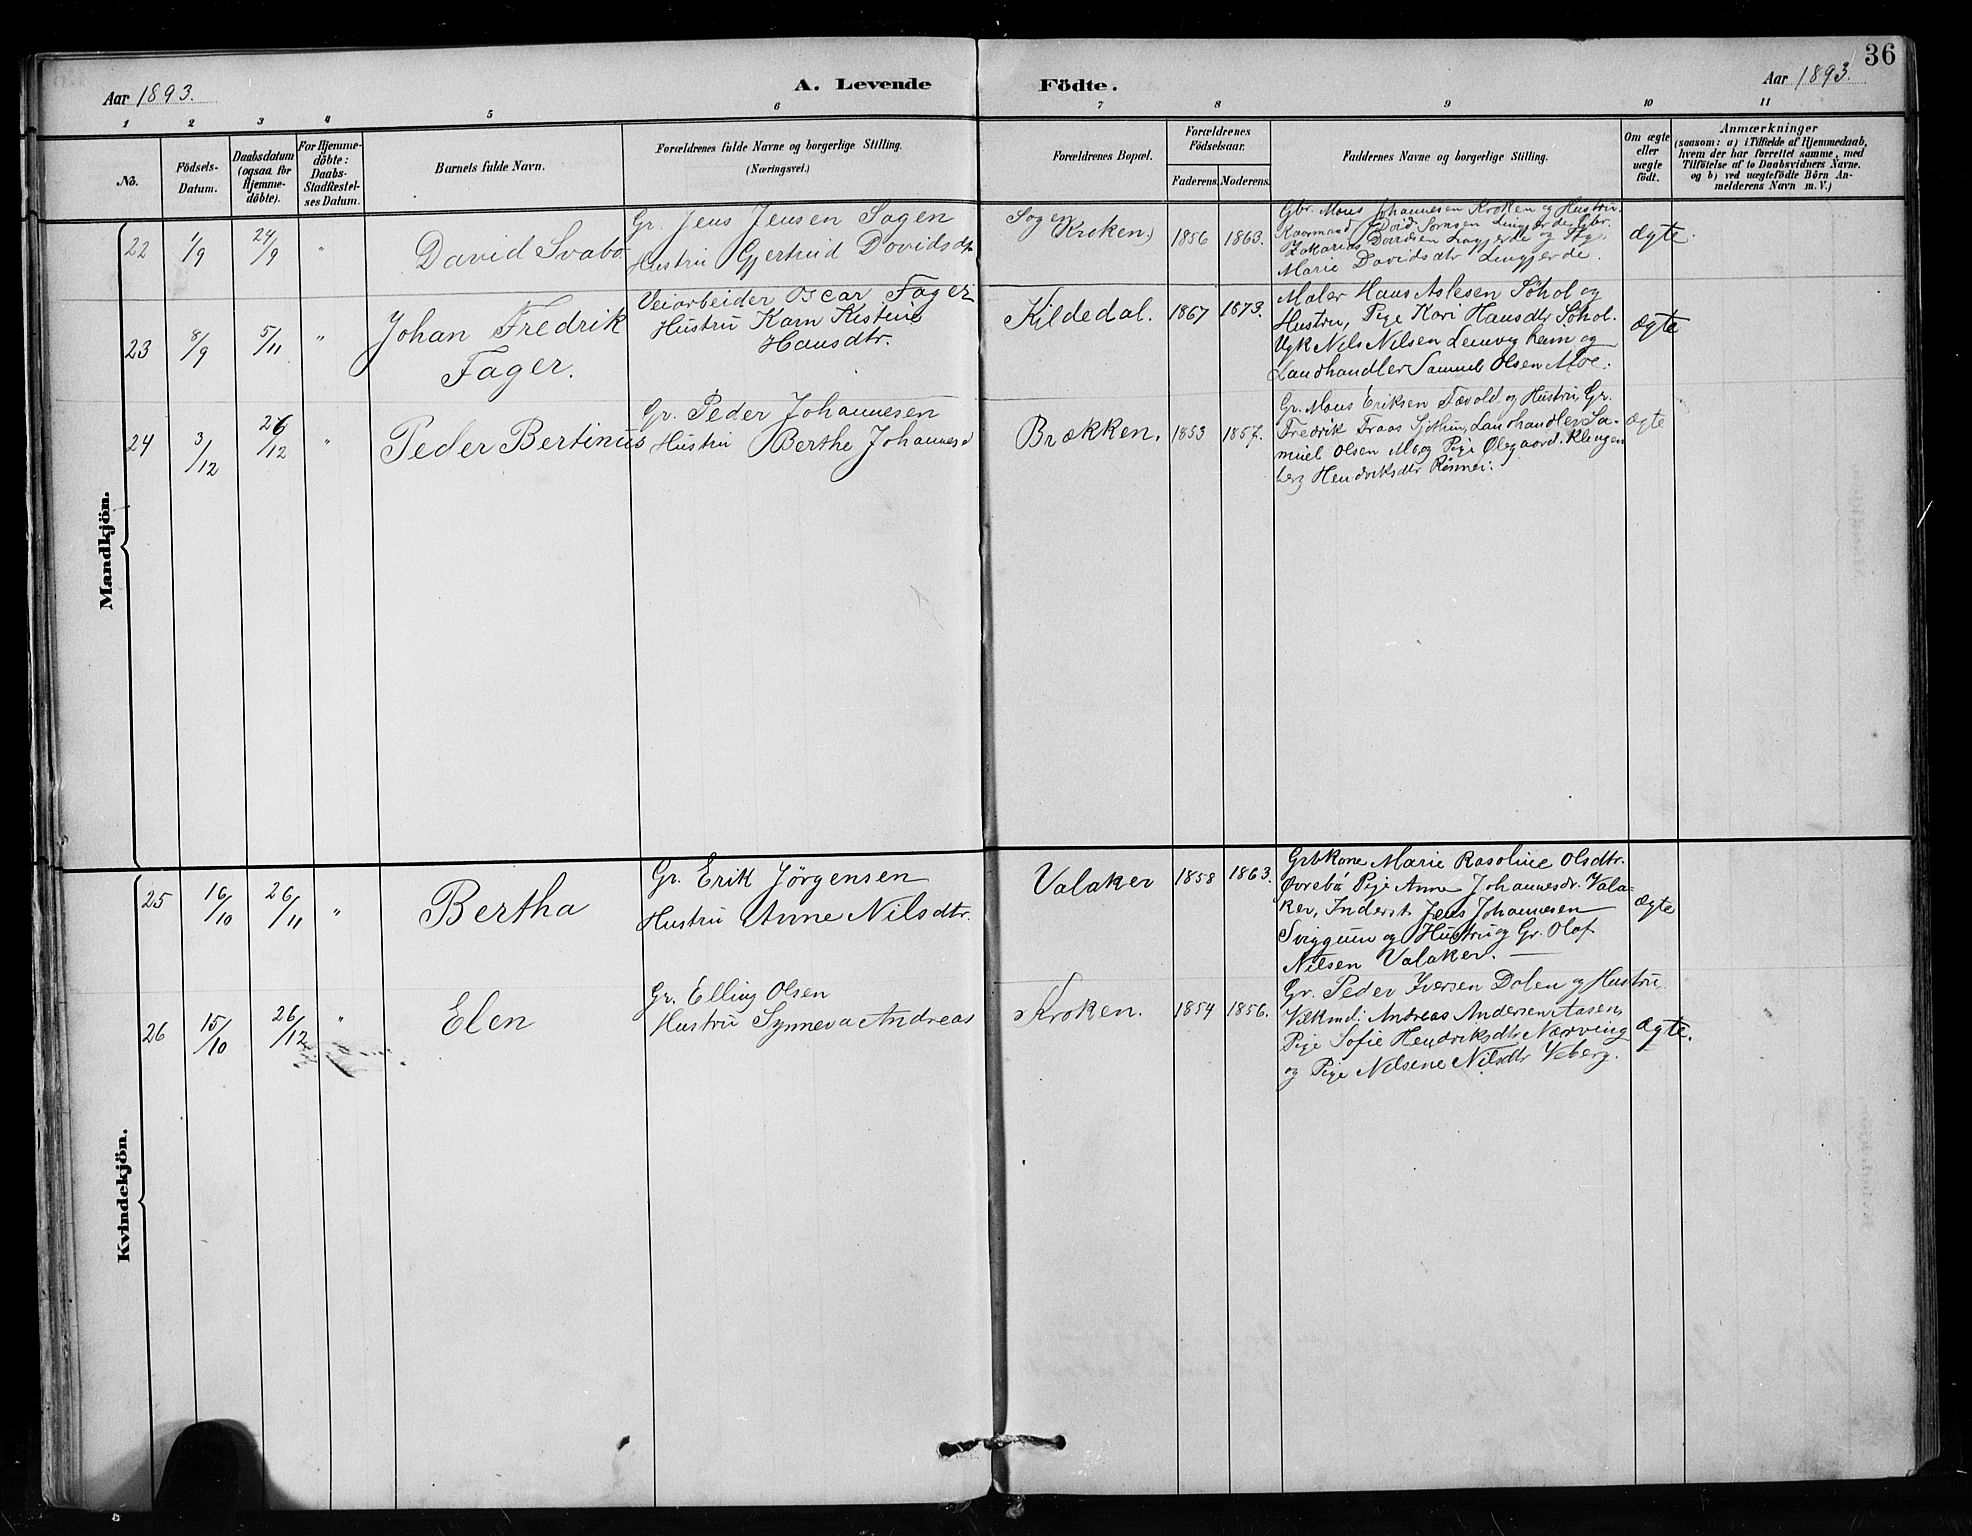 36
Aar 1893.
A. Levende
Födte.
Aar 1893.
1 2 3 4 5 6 7 8 9 10 11
No.
Födsels-
Datum.
Daabsdatum
(ogsaa för
Hjemme-
döbte).
For Hjemme-
döbte:
Daabs-
Stadfæstel-
ses Datum.
Barnets fulde Navn.
Forældrenes fulde Navne og borgerlige Stilling.
(Næringsvei.)
Forældrenes Bopæl.
Forældrenes
Födselsaar.
Faderens. Moderens.
Faddernes Navne og borgerlige Stilling.
Om ægte
eller
uægte
födt.
Anmærkninger
(saasom: a) i Tilfælde af Hjemmedaab,
hvem der har forrettet samme, med
Tilföielse af to Daabsvidners Navne.
og b) ved uægtefödte Börn An-
melderens Navn m. V.)
Mandkjön.
22 1/9 24/9 " David Svabo
Gr. Jens Jensen Sagen
Hustru Gjertrud Davidsdr
Sagen
Kroken)
1856 1863.
Gbr. Mons Johannesen Kroken og Hustru
Kaarmand David Lingjerde, Gbr.
Zakarias Davidsen Lingjerde og Pige
Marie Davidsdtr Lingjerde.
Ægte.
23 8/9 5/11 " Johan Fredrik
Fager.
Veiarbeider Oscar Fager
Hustru Karn Kistine
Hansdtr.
Kildedal. 1867 1873.
Maler Hans Aslesen Söhol og
Hustru, Pige Kari Hansdtr Söhol.
Ugk Nils Nilsen Lemvegheim og
Landhandler Samuel Olsen Moe.
Ægte
24 3/12 26/12 " Peder Bertinus
Gr. Peder Johannesen
Hustru Berthe Johannesd
Brækken. 1853 1857.
Gr. Mons Eriksen Fævold og Hustru, Gr.
Fredrik Fraas Sjöthun, Landhandler Sa-
muel Olsen Mo og Pige Olegaard Klingen
berg Hendriksdtr Rösnei.
Ægte
Kvindekjön.
25 16/10 26/11 " Bertha
Gr. Erik Jörgensen
Hustru Anne Nilsdtr.
Valaker 1858 1863.
Grbkone Marie Rasoline Olsdtr.
Övrebö Pige Anne Johannesdr. Vala-
ker, Inderst Jens Johannesen
Sviggum og Hustru og Gr. Olaf
Nilsen Valaker.
Ægte
26 15/10 26/12 " Elen
Gr. Elling Olsen
Hustru Synneva Andreas
Kroken. 1854 1856.
Gr. Peder Iversen Dalen og Hustru
Andreas Andersen Aasen,
Pige Sofie Hendriksdtr Nærving
og Pige Nilsene Nilsdtr Veberg.
Ægte.